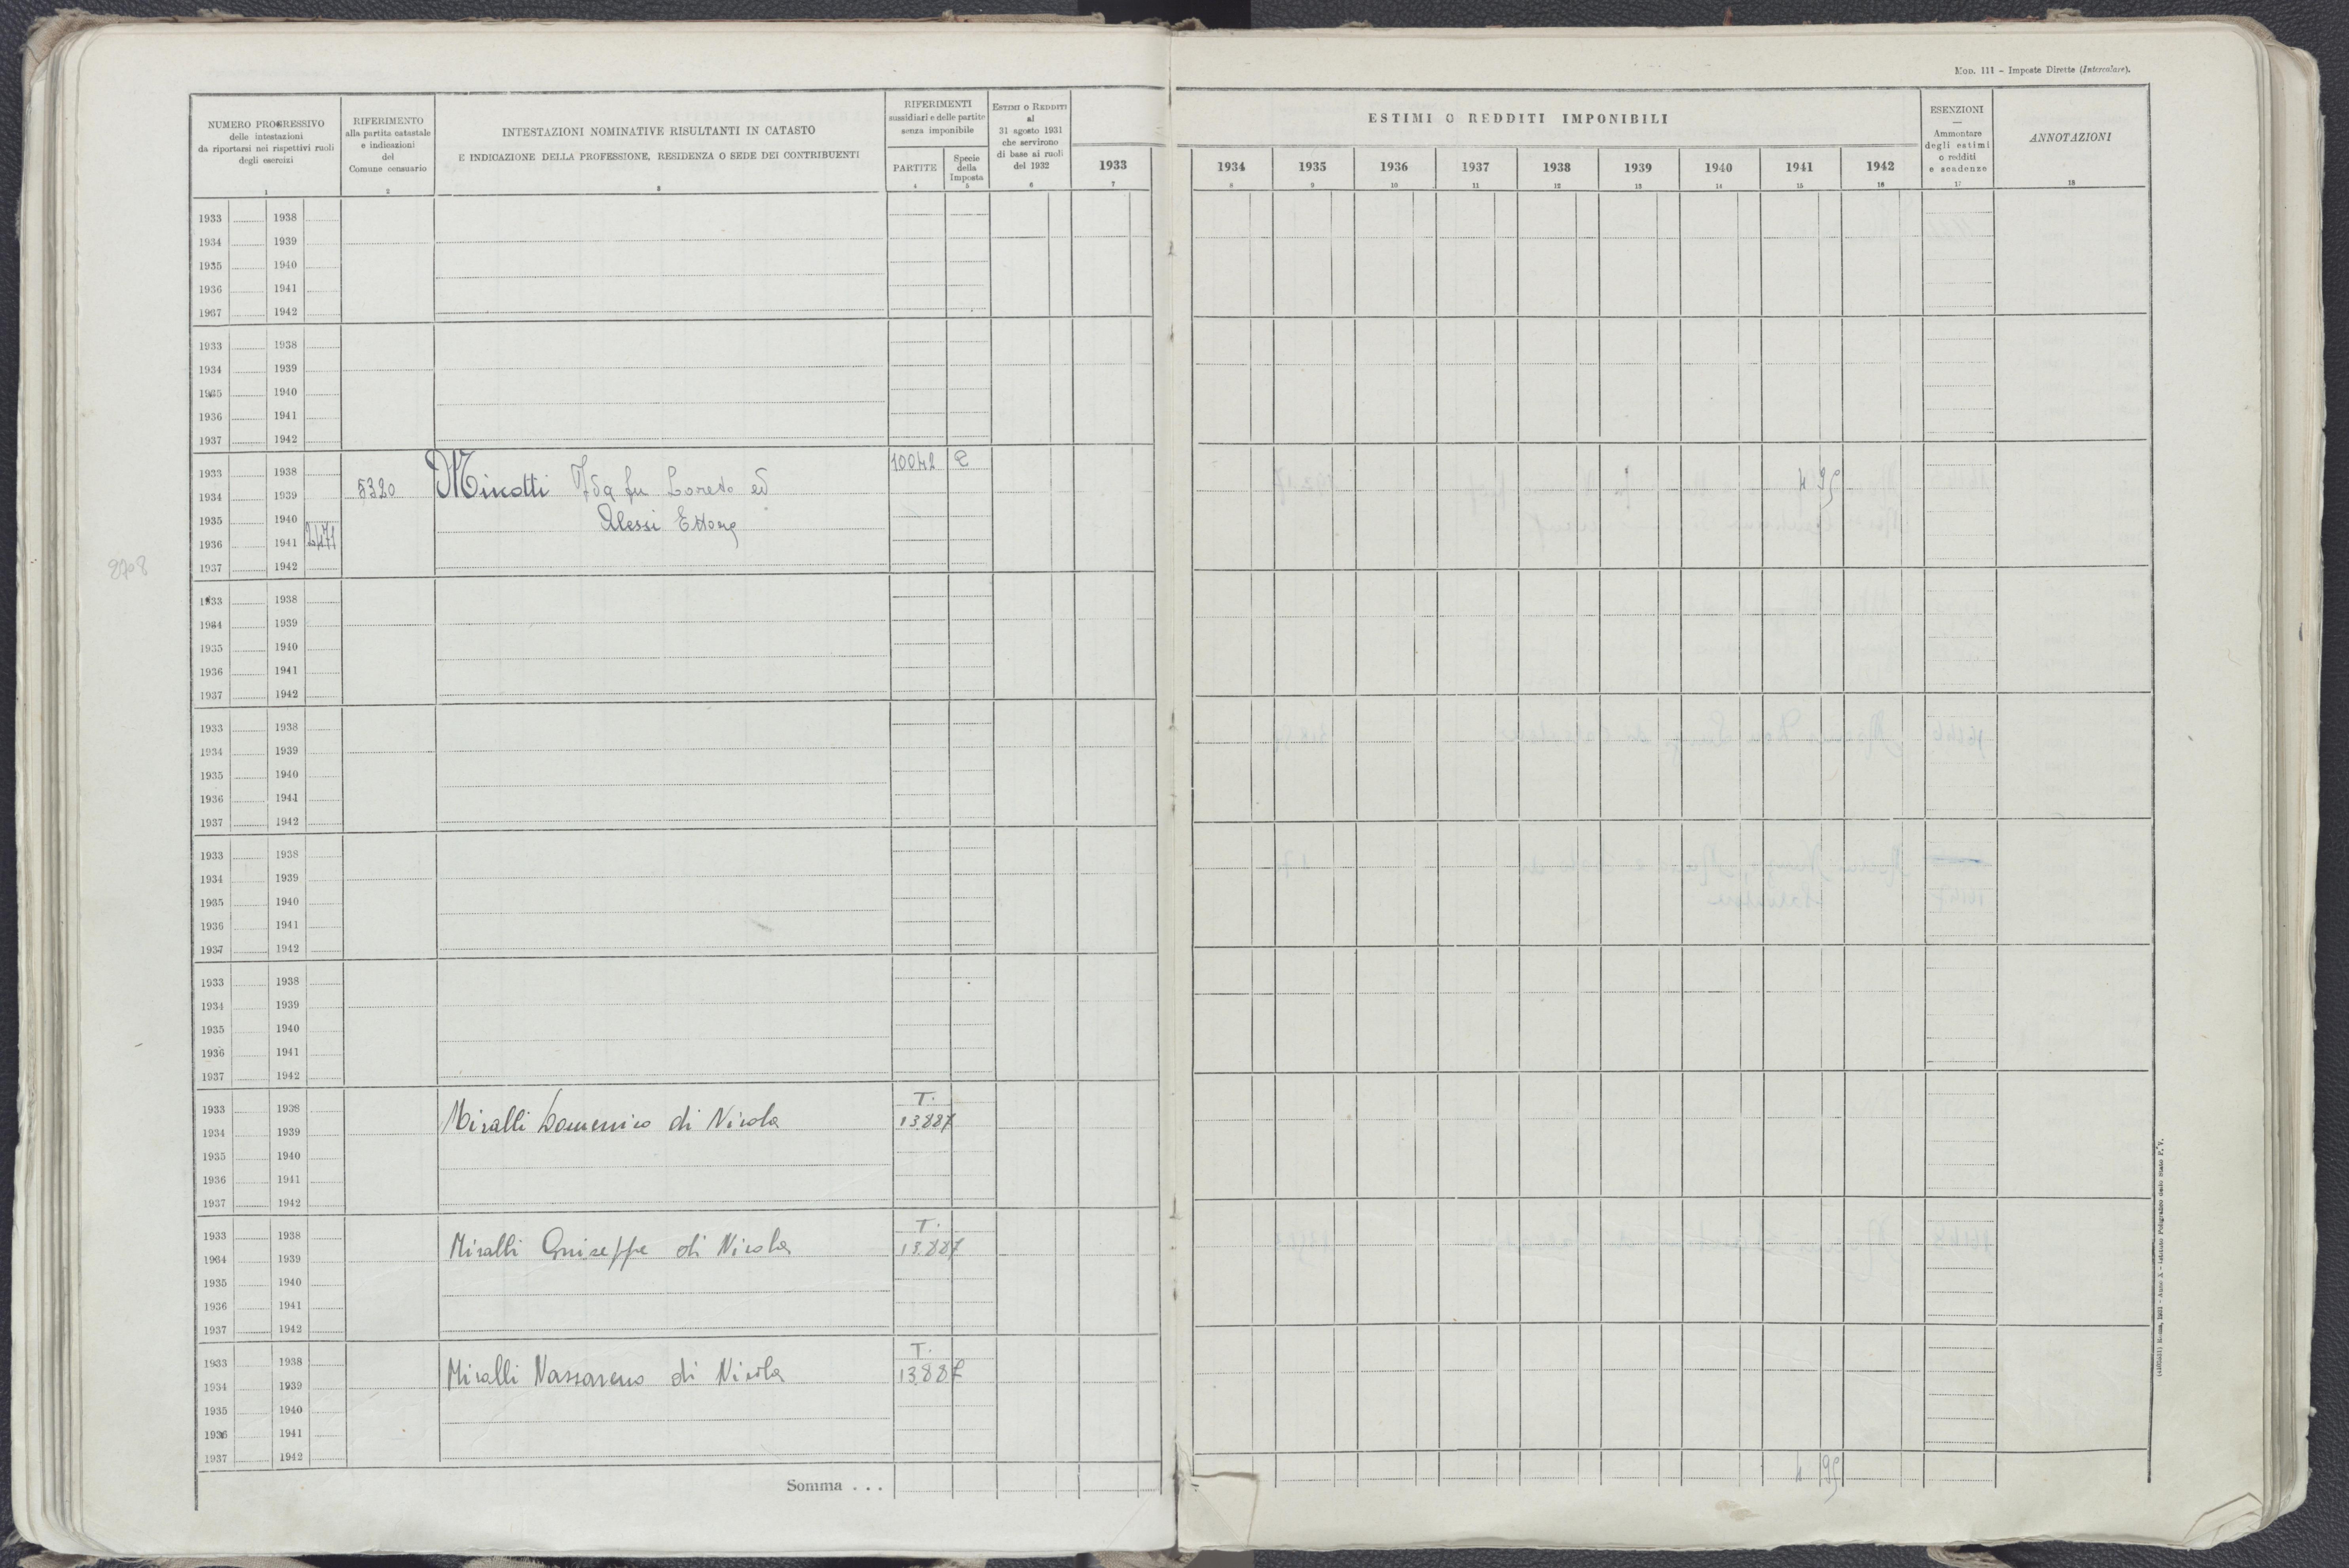 Mod. 111 - Imposte Dirette (Intercalare).
NUMERO PROGRESSIVO
delle intestazioni
da riportarsi nei rispettivi ruoli
degli esercizi
1
RIFERIMENTO
alla partita catastale
e indicazioni
del
Comune censuario
2
INTESTAZIONI NOMINATIVE RISULTANTI IN CATASTO
E INDICAZIONE DELLA PROFESSIONE, RESIDENZA O SEDE DEI CONTRIBUENTI
3
RIFERIMENTI
sussidiari e delle partite
senza imponibile
PARTITE
4
Specie
della
Imposta
5
ESTIMI O REDDITI
al
31 agosto 1931
che servirono
di base ai ruoli
del 1932
6
1933
7
ESTIMI O REDDITI IMPONIBILI
1934 1935 1936 1937 1938 1939 1940 1941 1942
8 9 10 11 12 13 14 15 16
ESENZIONI
—
Ammontare
degli estimi
o redditi
e scadenze
17
ANNOTAZIONI
18
1933 1938
1934 1939
1935 1940
1936 1941
1937 1942
1933 1938
1934 1939
1935 1940
1936 1941
1937 1942
1933 1938 10042
1934 1939 5320 Minotti Ida fu Loreto ed
1935 1940 Alessi Ettore
1936 1941 2471
1937 1942
8708
1933 1938
1934 1939
1935 1940
1936 1941
1937 1942
1933 1938
1934 1939
1935 1940
1936 1941
1937 1942
1933 1938
1934 1939
1935 1940
1936 1941
1937 1942
1933 1938
1934 1939
1935 1940
1936 1941
1937 1942
T.
1933 1938 Miralli Domenico di Nicola 13887
1934 1939
1935 1940
1936 1941
1937 1942
T.
1933 1938 Miralli Giuseppe di Nicola 13887
1934 1939
1935 1940
1936 1941
1937 1942
T.
1933 1938 Miralli Nazzareno di Nicola 13887
1934 1939
1935 1940
1936 1941
1937 1942
Somma . . .
4 95